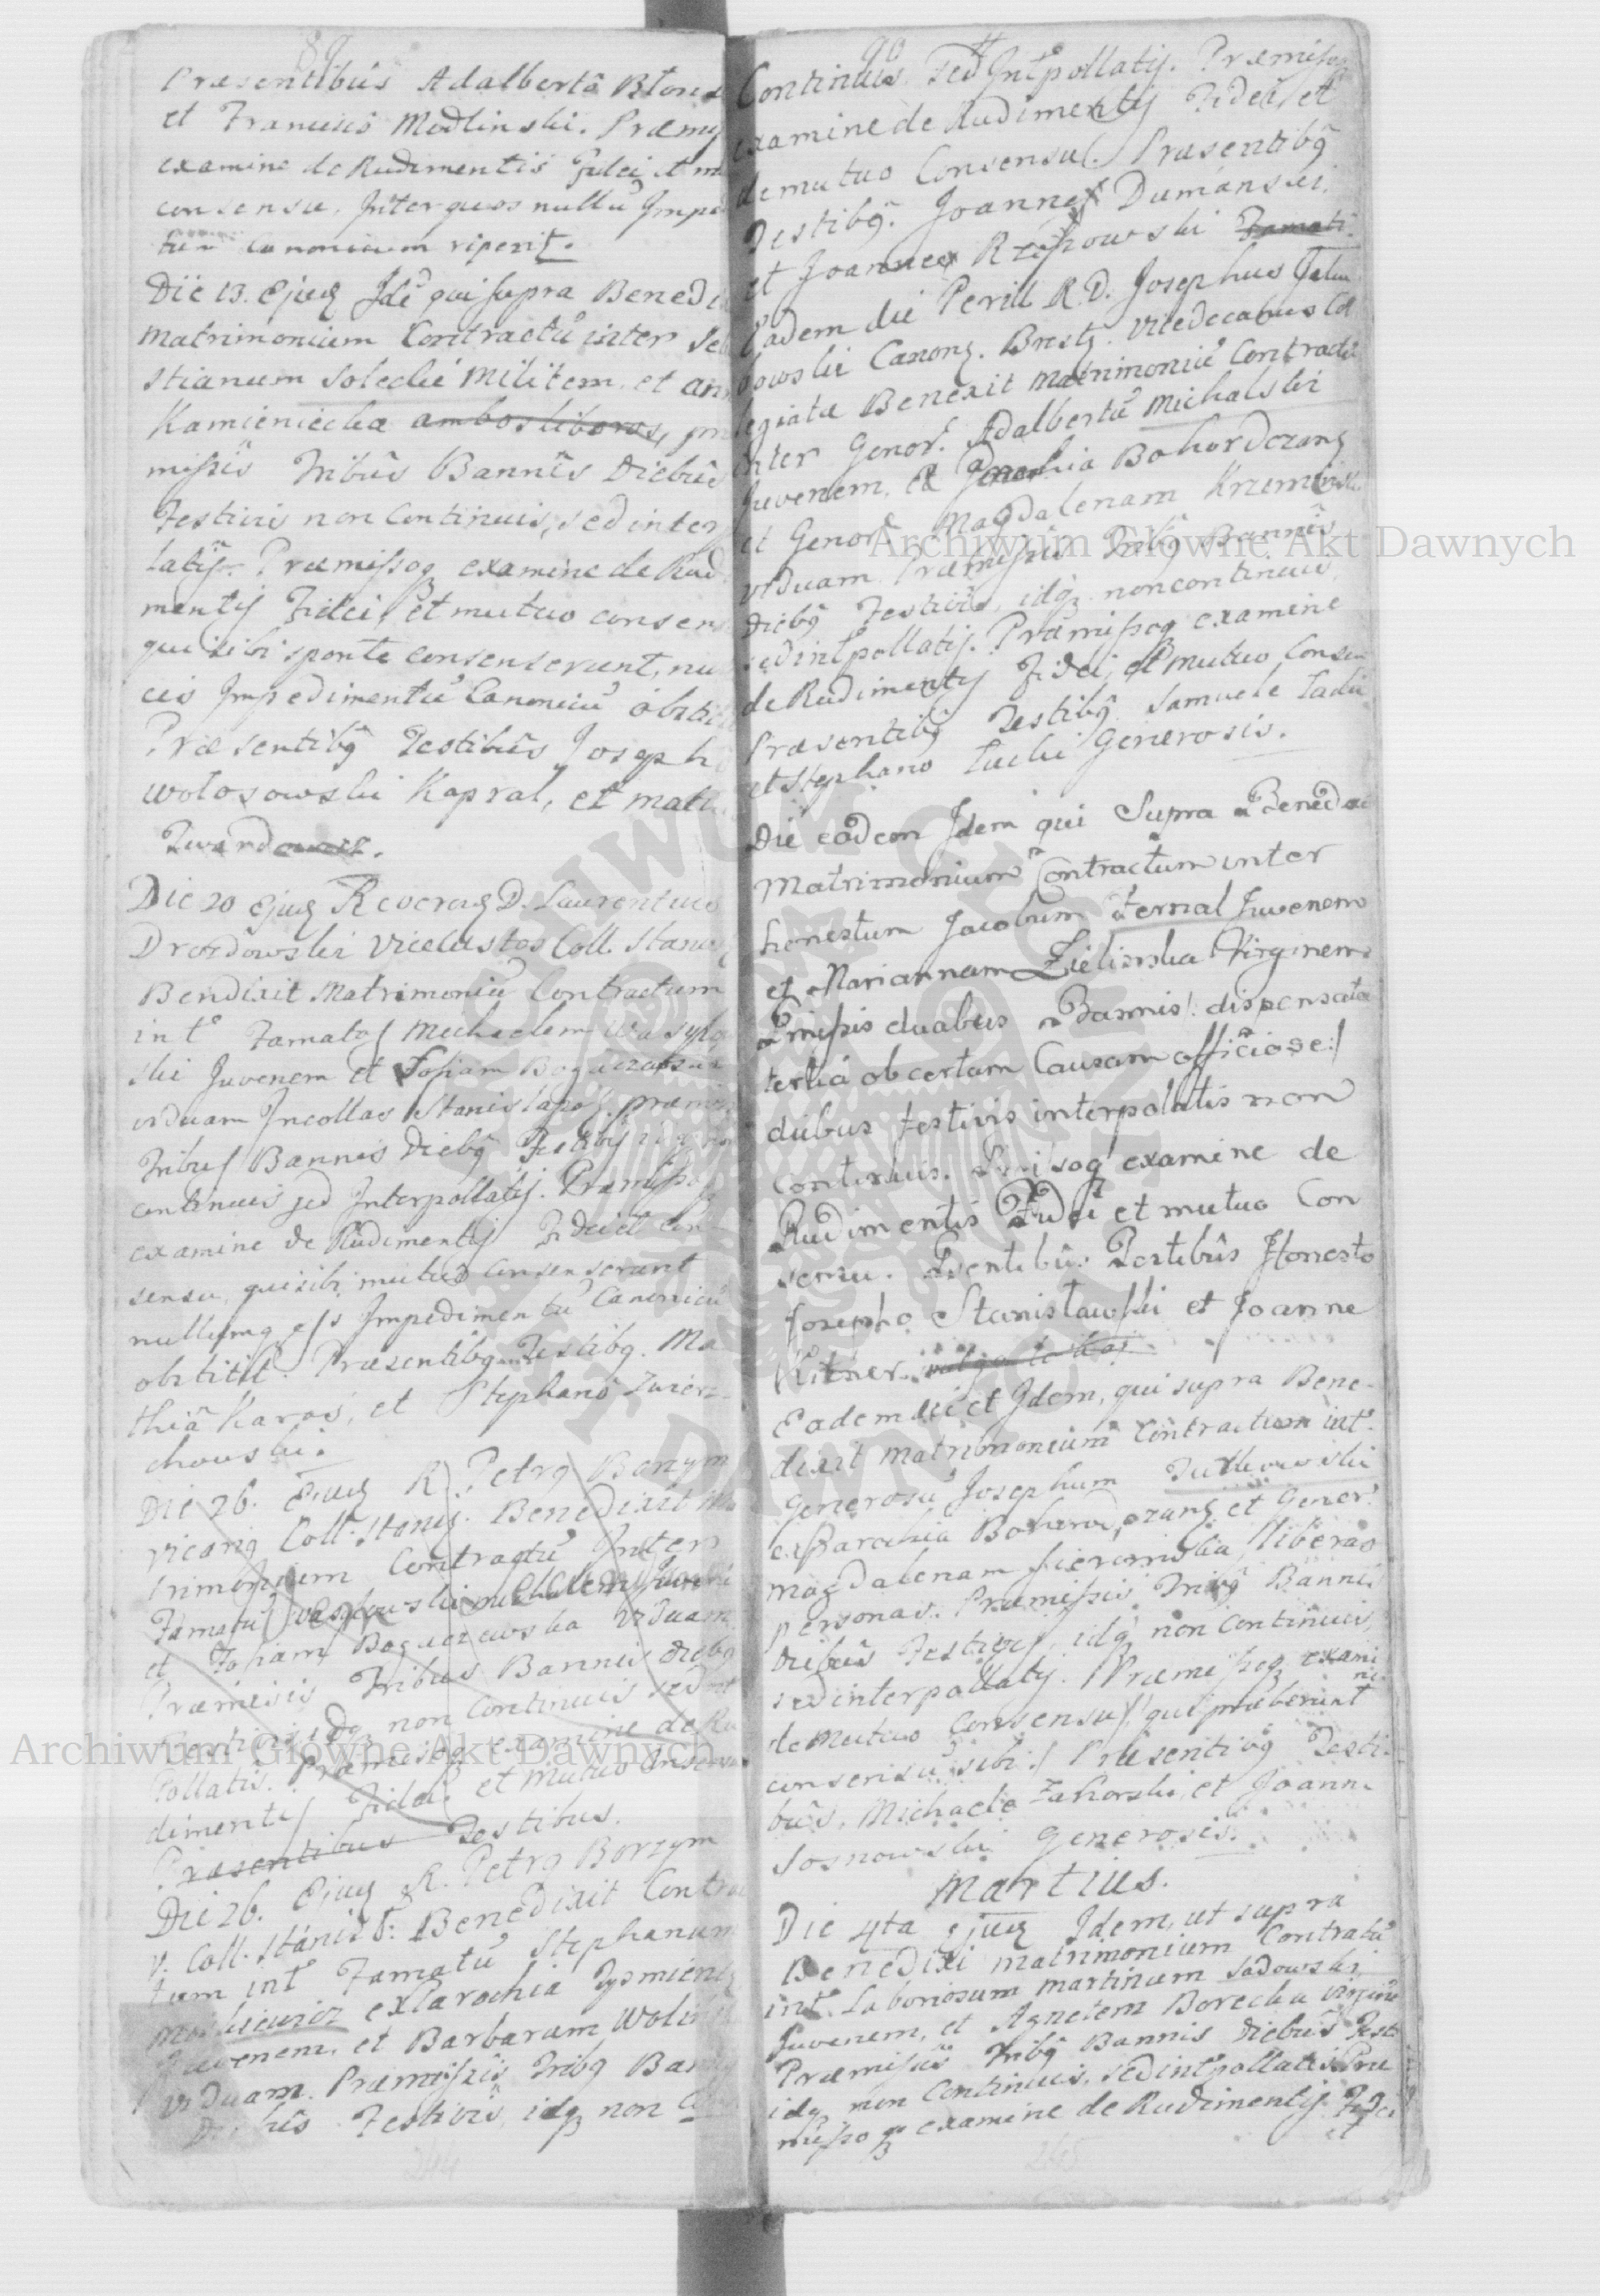 89
Præsentibus Adalberto Blons
et Francisco Modlinski. Præmis
examine de Rudimentis Fidei et mu
consensu, Inter quos nullũ Impe
tum Canonicum reperit.
Die 13. Ejusq Idẽ qui supra Benedi
Matrimonium Contractũ inter Seb
stianum Solecki Militem et An
Kamieniecka ambos liberos, præ
missis Tribus Bannis Diebus
Festivis non Continuis, sed inter
latis. Præmissoq examine de Rud
mentis Fidei, et mutuo consen
qui sibi sponte consenserunt, nu
cis Impedimentũ Canonicũ obstit
Præsentibq Testibus Joseph
Wolosowski Kapral, et Math
Twardowski.
Die 20 Ejusq Reverendq D. Laurentius
Drozdowski Vicecustos Coll. Stanis
Bendixit Matrimoniũ Contractum
intr Famatos Michaelem Wasylo
ski Juvenem et Sofiam Boguczewska
viduam Incollas Stanislapol. præmis
Tribus Bannis Diebq Festivis idq non
continuis sed Interpollatis. Præmissoq
examine de Rudimentis Fidei et con
sensu, qui sibi mutuo consenserunt
nullumq eis Impedimentũ Canonicũ
obstitit. Præsentibq Testibq. Ma
thiã Karas, et Stephano Zwierz
chowski.
Die 26. Ejusq R. Petrq Borzym
vicariq Coll. Stanis. Benedixit Ma
trimonium Contractũ Inter
Famatũ Wasylowski Michalem Juveni
et Sofiam Boguczewska Viduam
Præmissis Tribus Bannis diebq
Festivis idq non Continuis sed int
pollatis. Præmissoq examine de Ru
dimentis Fidei et Mutuo Consensu
Præsentibus Testibus.
Die 26. Ejusq R. Petrq Borzym
V. Coll. Stanis: Benedixit Contrac
tum intr Famatũ Stephanum
ex Parochia Tysmienis
Juvenem, et Barbaram Wolins
viduam. Præmissis Tribq Bannis
Diebus Festivis, idq non Con
244
90
Continuis, sed Intrpollatis. Præmissoq
examine de Rudimentis Fidei et
de mutuo Consensu. Præsentibq
Testibq. Joanne Dumanski
et Joanne Rzeszowski Famati.
Eadem die Perill. R. D. Josephus
Canong. Brestq. Vicedecanus Col
legiatæ Benexit Matrimoniũ Contractũ
inter Gener. Adalbertũ Michalski
Juvenem, ex Parochia Bohordczang
et Generã Magdalenam Krzeminska
viduam Præmissis Tribq Bannis
Diebq Festivis, idq non continuis,
sed intrpollatis. Præmissoq examine
de Rudimentis Fidei, et mutuo Consen
Præsentibq Testibq Samuele
et Stephano Generosis.
Die eadem Idem qui Supra Benedixi
Matrimonium Contractum inter
honestum Jacobum Fernal Juvenem
et Mariannam Zielinska Virginem
Pmissis duabus Bannis: dispensata
tertia ob certam Causam officiose:/
diebus festivis interpolatis non
continuis. Pmissoq examine de
Rudimentis Fidei et mutuo Con
sensu. Psentibus Testibus Honesto
Josepho Stanislawski et Joanne
Kitner
Eadem die et Idem, qui supra Bene-
dixit Matrimonium Contractum intr.
Generosũ Josephum Jutkowski
ex Parochia Bohorodczang et Gener.
Magdalenam Sieromska, liberas
personas. Præmissis Tribq Bannis
Diebus Festivis, idq non Continuis,
sed interpollatis. Præmissoq exami
ne
de Mutuo Consensu, qui præberunt
consensũ sibi:/ Præsentibq Testi-
bus, Michaele Zahorski, et Joanne
Sosnowski Generosis.
Martius.
Die 4ta ejusq Idem, ut supra
Benedixi matrimonium Contractũ
intr. Laboriosum Martinum Sadowski
Juvenem, et Agnetem Borecka virginẽ
Præmissis Tribq Bannis Diebus Festi
idq non Continuis, sed intrpollatis Præ
missoq examine de Rudimentis Fidei
et
245
Archiwum Główne Akt Dawnych
Archiwum Główne Akt Dawnych